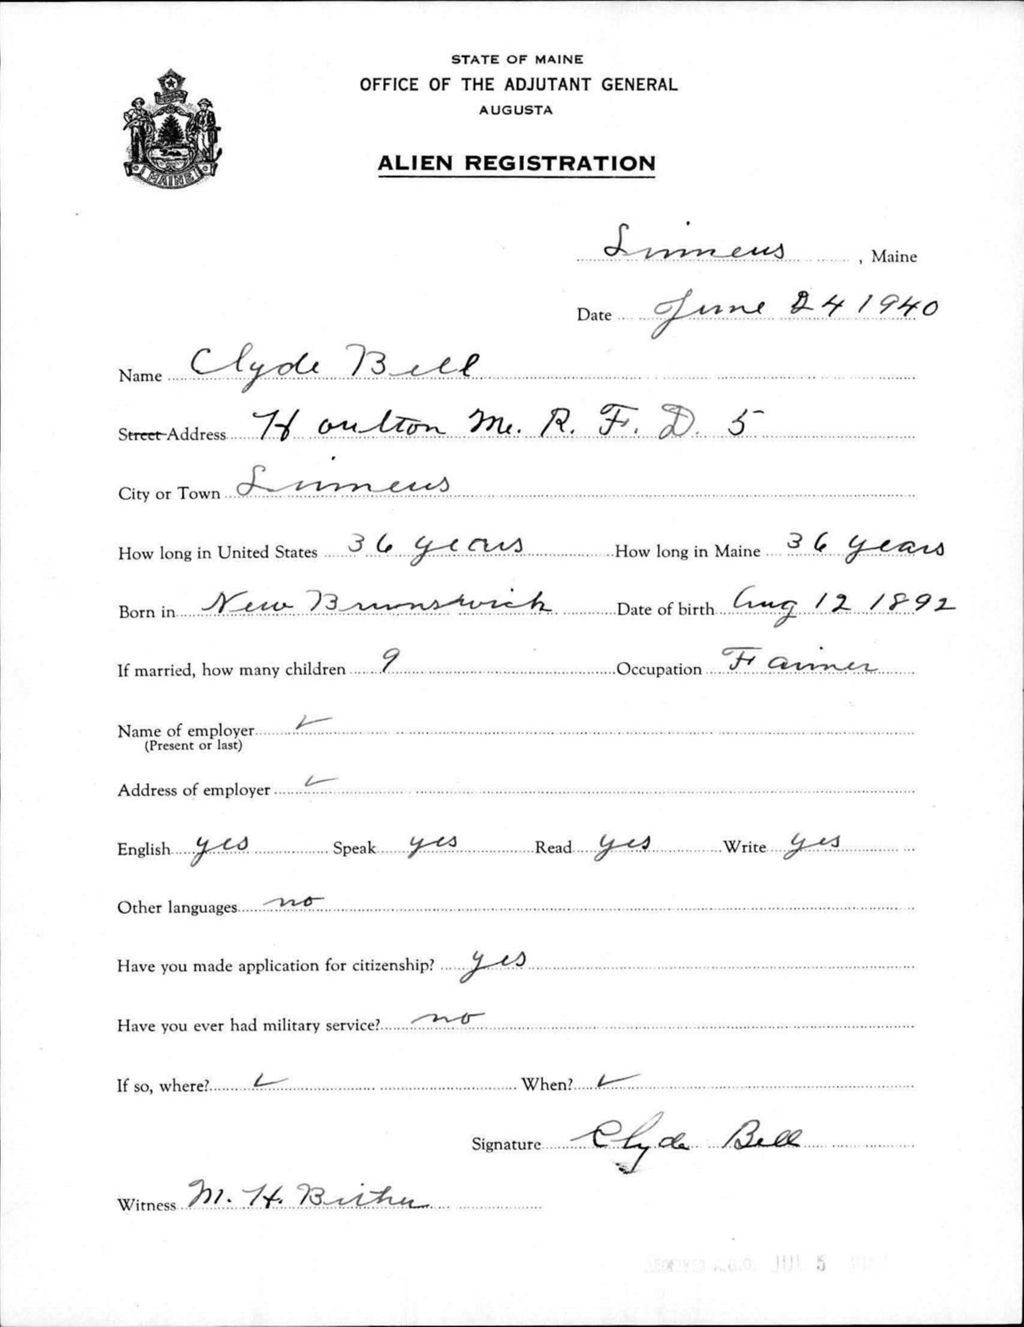 STATE OF MAINE
OFFICE OF THE ADJUTANT GENERAL
AUGUSTA
ALIEN REGISTRATION
MAINE
Linneus, Maine
Date June 24 1940
Name Clyde Bell
Street Address Houlton Me. R. F. D. 5
City or Town Linneus
How long in United States 36 years How long in Maine 36 years
Born in New Brunswick Date of birth Aug 12 1892
If married, how many children 9 Occupation Farmer
Name of employer ✓
(Present or last)
Address of employer ✓
English yes Speak yes Read yes Write yes
Other languages no
Have you made application for citizenship? yes
Have you ever had military service? no
If so, where? ✓ When? ✓
Signature Clyde Bell
Witness M. H.
A.G.O. JUL 5